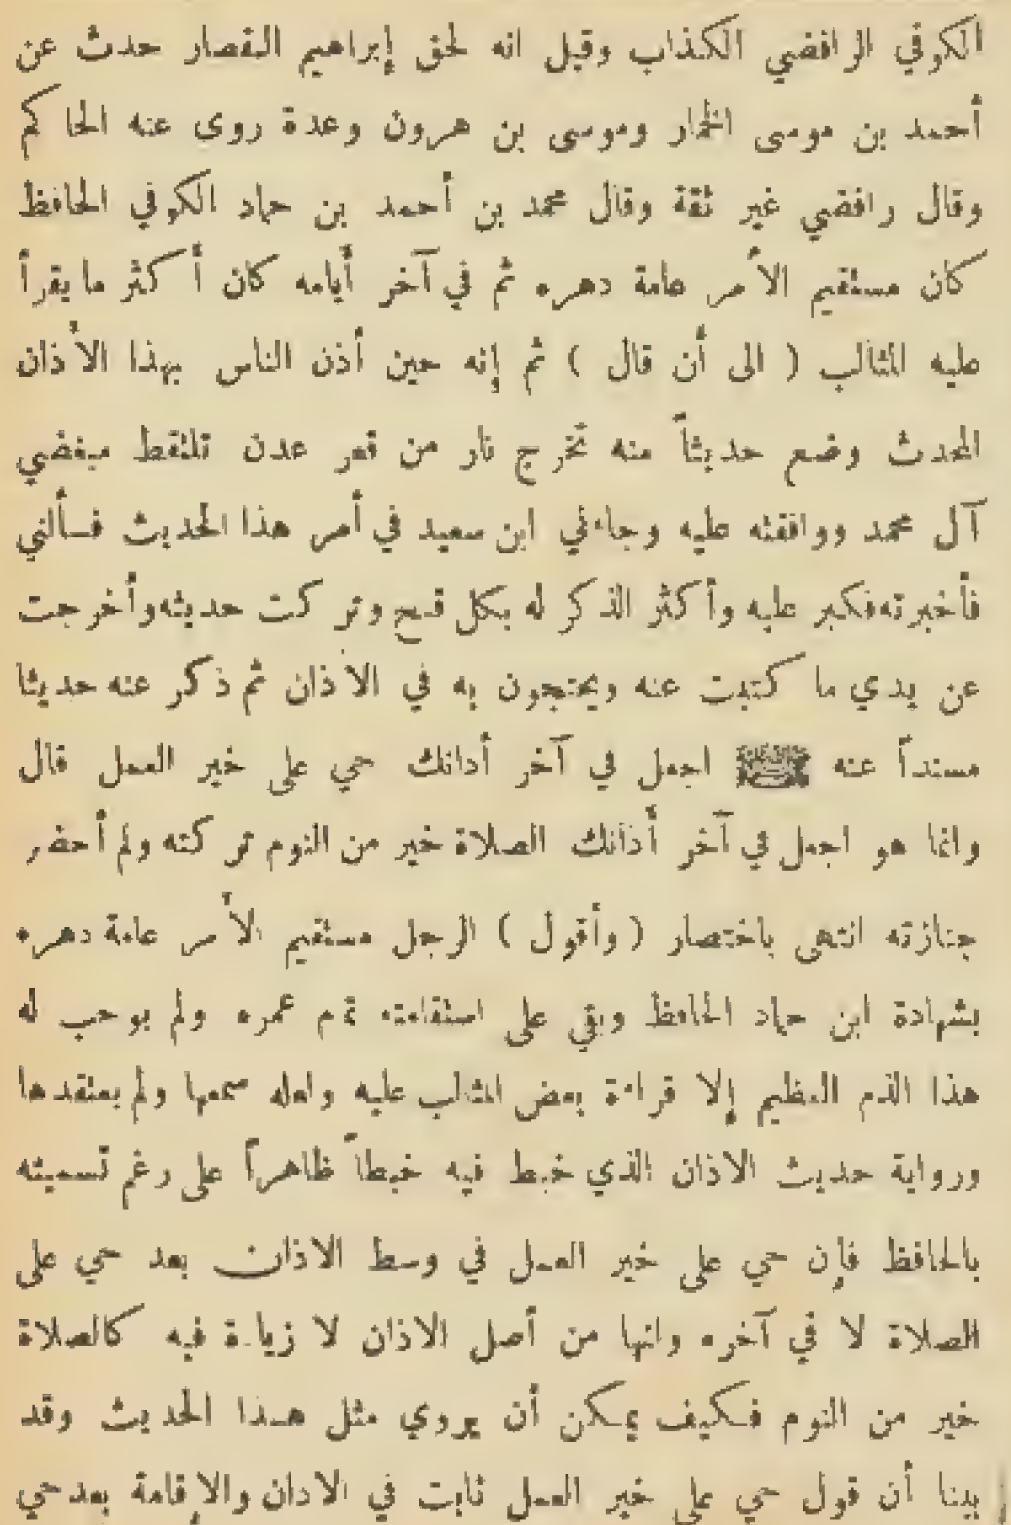 الكوفي الرافضي الكذاب وقيل انه لحق إبراهيم القصار حدث عن
أحمد بن موسى الخمار وموسى بن هرون وعدة روى عنه الحاكم
وقال رافضي غير ثقة وقال محمد بن أحمد بن حماد الكوفي الحافظ
كان مستقيم الأمر عامة دهره ثم في آخر أيامه كان أكثر ما يقرأ
عليه المثالب ( الى أن قال ) ثم إنه حين أذن الناس بهذا الأذان
المحدث وضع حديثاً منه تخرج نار من قعر عدن تلتقط مبغضي
آل محمد ووافقته عليه وجاءني ابن سعيد في أمر هذا الحديث فسألني
فأخبرته فكبر عليه وأكثر الذكر له بكل قبيح وتركت حديثه وأخرجت
عن يدي ما كتبت عنه ويحتجون به في الأذان ثم ذكر عنه حديثا
مسنداً عنه ﷺ اجعل في آخر أذانك حي على خير العمل قال
وانما هو اجعل في آخر أذانك الصلاة خير من النوم تركته ولم أحضر
جنازته انتهى باختصار ( وأقول ) الرجل مستقيم الأمر عامة دهره
بشهادة ابن حماد الحافظ وبقي على استقامته تمام عمره ولم يوجب له
هذا الذم العظيم إلا قراءة بعض المثالب عليه ولعله سمعها ولم يعتقدها
ورواية حديث الاذان الذي خبط فيه خبطاً ظاهراً على رغم تسميته
بالحافظ فإن حي على خير العمل في وسط الاذان بعد حي على
الصلاة لا في آخره وانها من أصل الاذان لا زيادة فيه كالصلاة
خير من النوم فكيف يمكن أن يروي مثل هذا الحديث وقد
بينا أن قول حي على خير العمل ثابت في الاذان والإقامة بعد حي